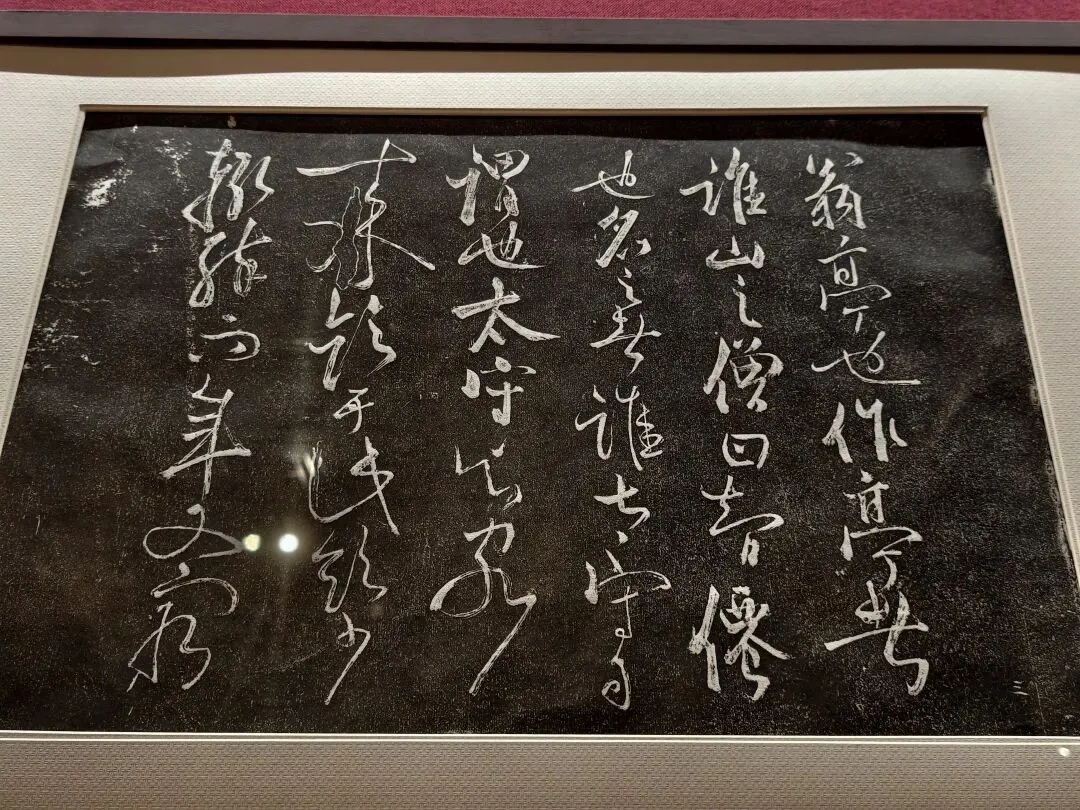 翁亭也作亭者
誰山之僧曰智僊
也名之者誰太守自
謂也太守與客
来飲于此飲少
輒醉而年又最
三